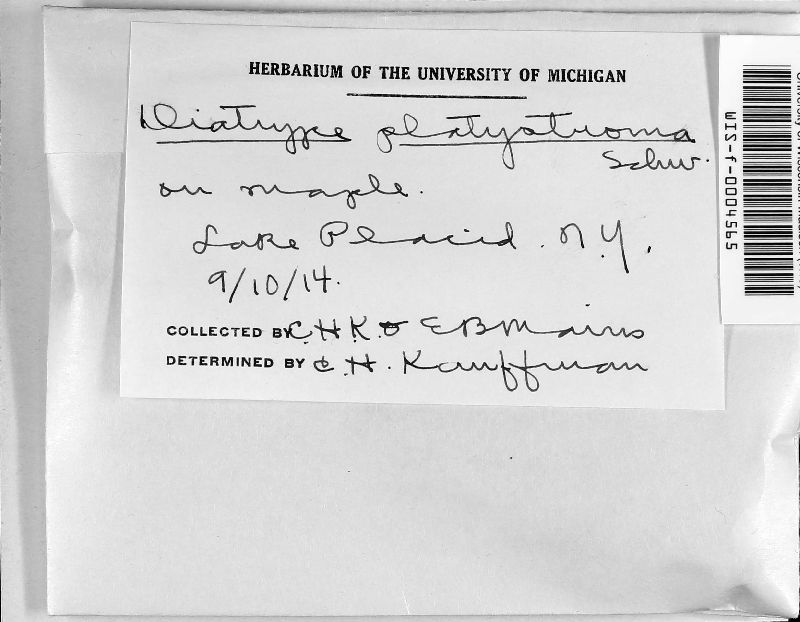 HERBARIUM OF THE UNIVERSITY OF MICHIGAN
Diatrype platystroma
Schw.
on maple.
Lake Placid. N.Y.
9/10/14.
COLLECTED BY C.H.K. & E B Mains
DETERMINED BY C.H. Kauffman
WIS-f-0004565